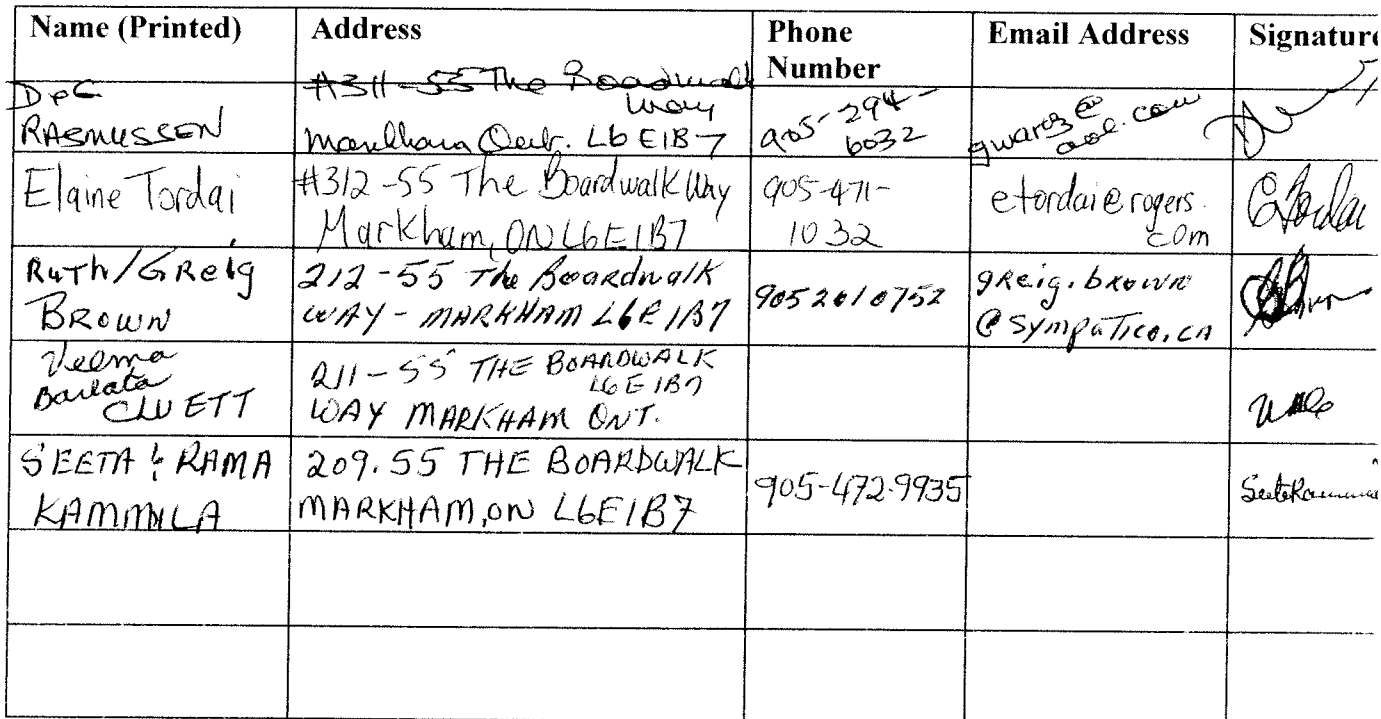 Name (Printed) Address Phone Number Email Address Signature
RASMUSSEN
#311-55 The Boardwalk
Way
Markham Ont. L6E1B7
905-294-
6032
Elaine Tordai
#312-55 The Boardwalk Way
Markham, ON L6E1B7
905-471-
1032
etordai@rogers.
com
Ruth/GReig
BROWN
212-55 The Boardwalk
WAY - MARKHAM L6E 1B7
905 201 0752
gReig.bRown
@sympaTico.ca
Velma
CLUETT
211-55 THE BOARDWALK
L6E 1B7
WAY MARKHAM ONT.
SEETA & RAMA
KAMMILA
209.55 THE BOARDWALK
MARKHAM, ON L6E1B7
905-472-9935